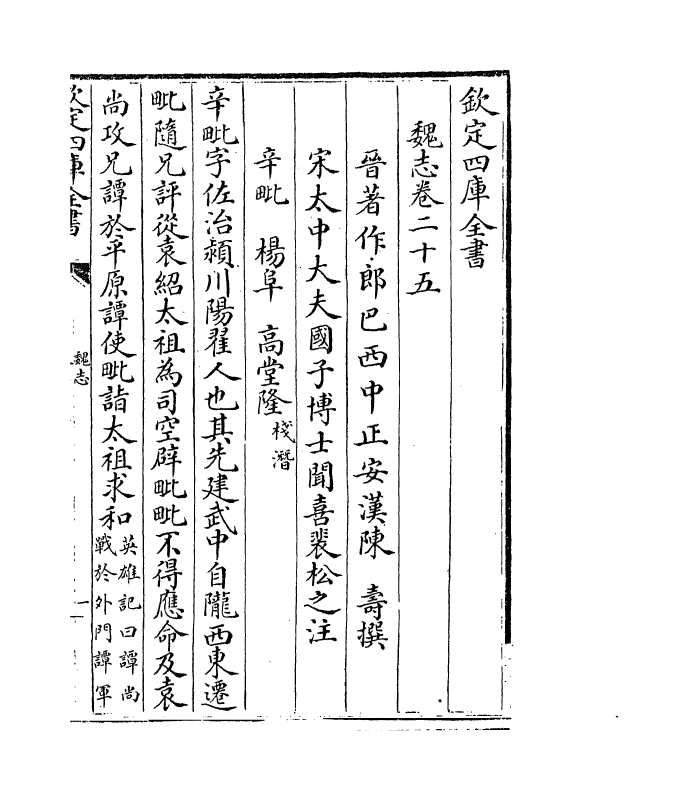 欽定四庫全書
魏志卷二十五
晉著作郎巴西中正安漢陳　壽撰
宋太中大夫國子博士聞喜裴松之注
辛毗　楊阜　高堂隆棧潛
辛毗字佐治潁川陽翟人也其先建武中自隴西東遷
毗隨兄評從袁紹太祖為司空辟毗毗不得應命及袁
尚攻兄譚於平原譚使毗詣太祖求和英雄記曰譚尚
戰於外門譚軍
欽定四庫全書
魏志
一